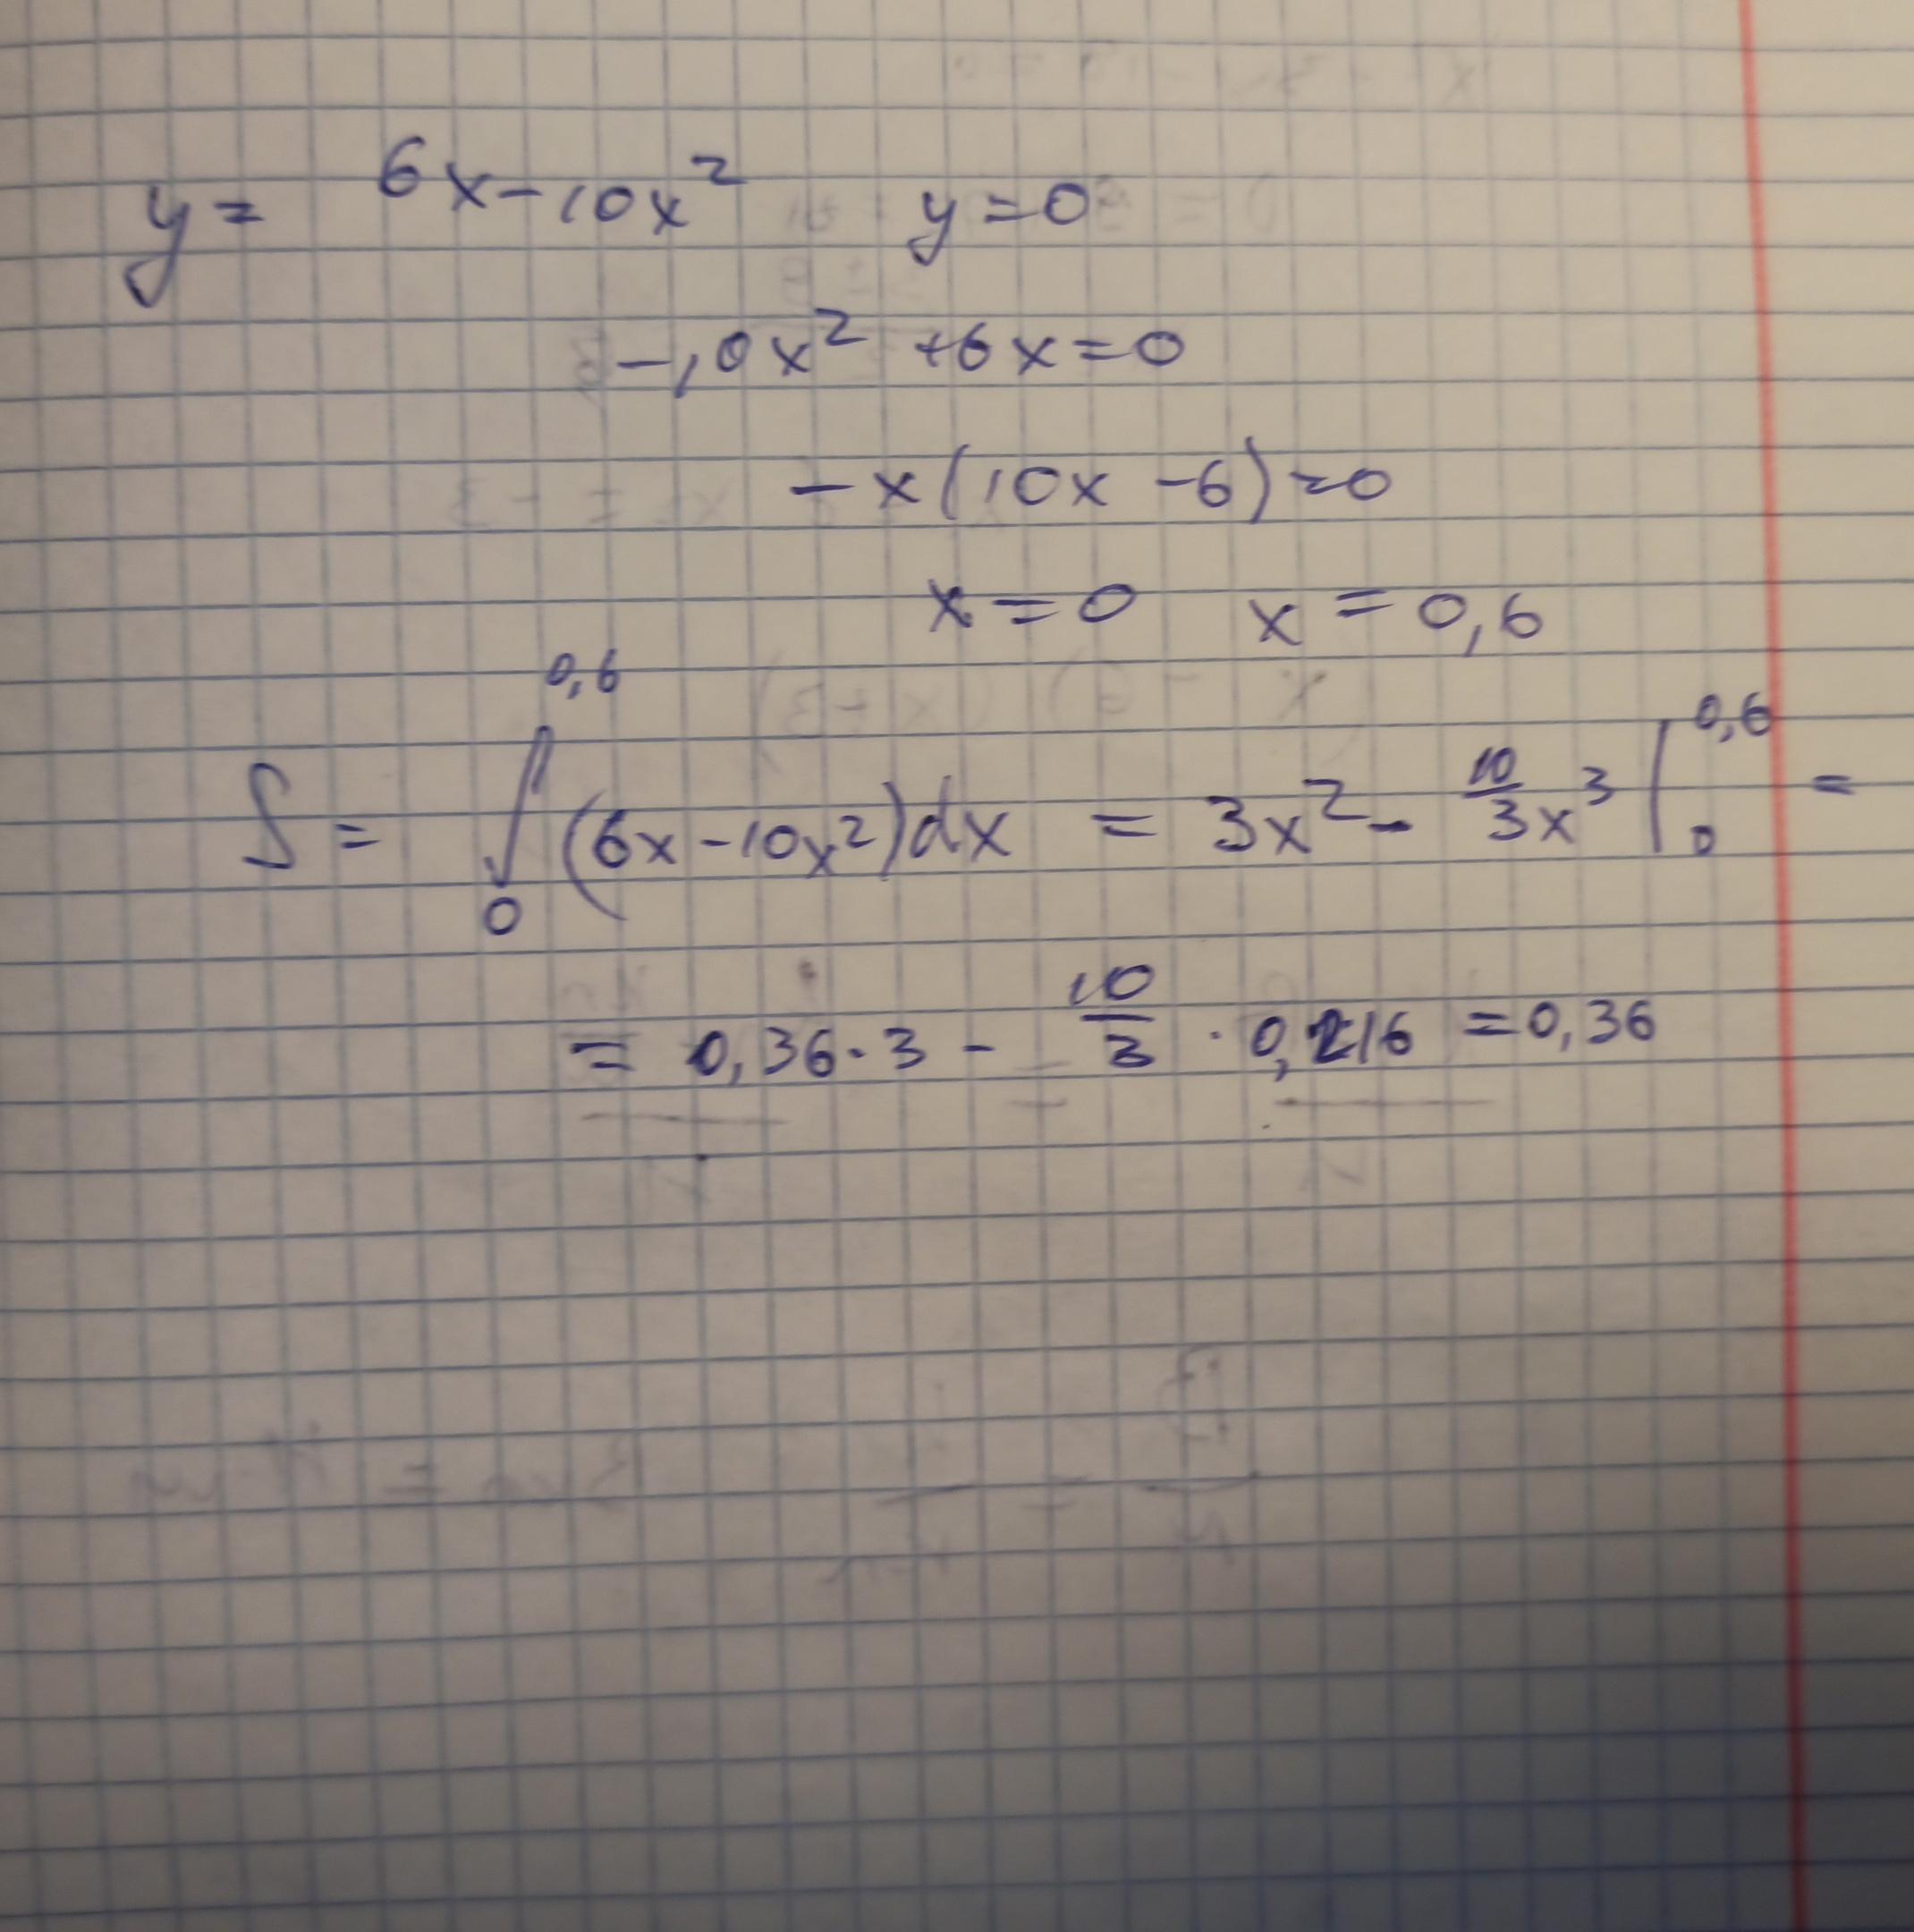 y = 6x-10x² y=0
-10x² +6x=0
-x(10x-6)=0
x=0 x=0,6
S = ∫₀^0,6 (6x-10x²)dx = 3x² - 10/3x³ |₀^0,6 =
= 0,36·3 - 10/3 · 0,216 = 0,36